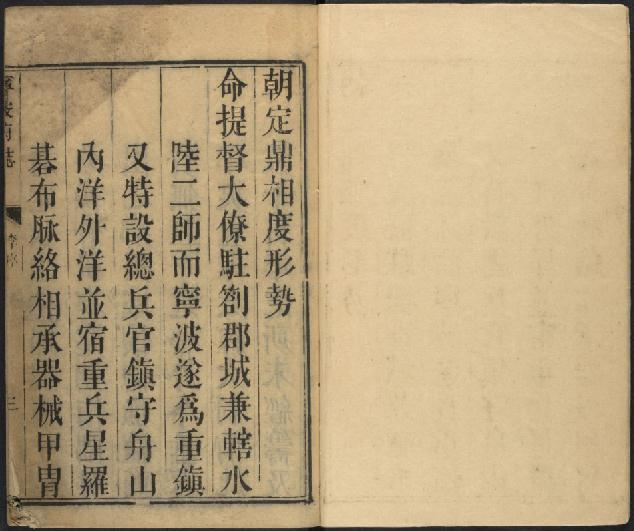 朝定鼎相度形勢
命提督大僚駐劄郡城兼轄水
陸二師而寧波遂爲重鎮
又特設總兵官鎮守舟山
內洋外洋並宿重兵星羅
碁布脉絡相承器械甲冑
寧波府誌
李序
三